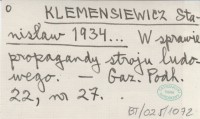 o KLEMENSIEWICZ Sta-
nisław 1934... W sprawie
propagandy stroju ludo-
wego. — Gaz. Podh.
22, nr 27.
BT/025/1072